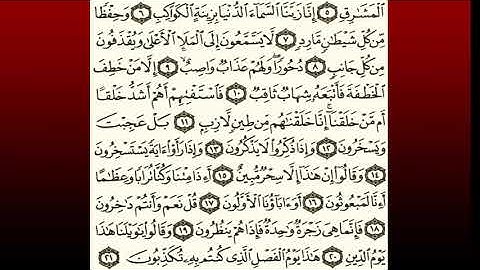 ٱلۡمَشَٰرِقِ ٥ إِنَّا زَيَّنَّا ٱلسَّمَآءَ ٱلدُّنۡيَا بِزِينَةٍ ٱلۡكَوَاكِبِ ٦ وَحِفۡظٗا
مِّن كُلِّ شَيۡطَٰنٖ مَّارِدٖ ٧ لَّا يَسَّمَّعُونَ إِلَى ٱلۡمَلَإِ ٱلۡأَعۡلَىٰ وَيُقۡذَفُونَ
مِن كُلِّ جَانِبٖ ٨ دُحُورٗاۖ وَلَهُمۡ عَذَابٞ وَاصِبٌ ٩ إِلَّا مَنۡ خَطِفَ
ٱلۡخَطۡفَةَ فَأَتۡبَعَهُۥ شِهَابٞ ثَاقِبٞ ١٠ فَٱسۡتَفۡتِهِمۡ أَهُمۡ أَشَدُّ خَلۡقًا
أَم مَّنۡ خَلَقۡنَآۚ إِنَّا خَلَقۡنَٰهُم مِّن طِينٖ لَّازِبِۭ ١١ بَلۡ عَجِبۡتَ
وَيَسۡخَرُونَ ١٢ وَإِذَا ذُكِّرُواْ لَا يَذۡكُرُونَ ١٣ وَإِذَا رَأَوۡاْ ءَايَةٗ يَسۡتَسۡخِرُونَ
١٤ وَقَالُوٓاْ إِنۡ هَٰذَآ إِلَّا سِحۡرٞ مُّبِينٌ ١٥ أَءِذَا مِتۡنَا وَكُنَّا تُرَابٗا وَعِظَٰمًا
أَءِنَّا لَمَبۡعُوثُونَ ١٦ أَوَءَابَآؤُنَا ٱلۡأَوَّلُونَ ١٧ قُلۡ نَعَمۡ وَأَنتُمۡ دَٰخِرُونَ
١٨ فَإِنَّمَا هِيَ زَجۡرَةٞ وَٰحِدَةٞ فَإِذَا هُمۡ يَنظُرُونَ ١٩ وَقَالُواْ يَٰوَيۡلَنَا هَٰذَا
يَوۡمُ ٱلدِّينِ ٢٠ هَٰذَا يَوۡمُ ٱلۡفَصۡلِ ٱلَّذِي كُنتُم بِهِۦ تُكَذِّبُونَ ٢١